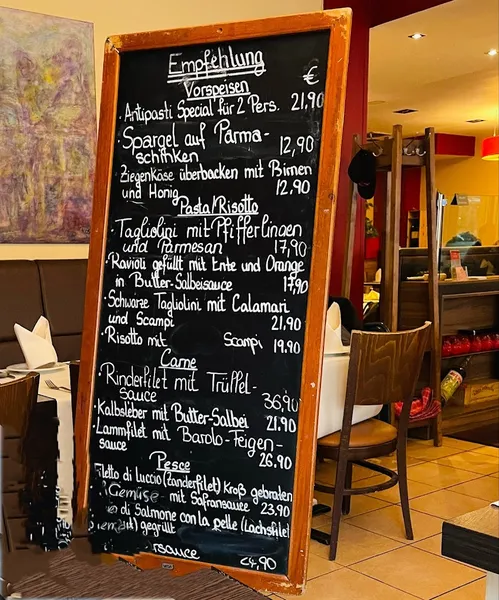 Empfehlung
€
Vorspeisen
· Antipasti Special für 2 Pers. 21,90
· Spargel auf Parma-
schinken 12,90
· Ziegenkäse überbacken mit Birnen
und Honig 12.90
Pasta/Risotto
· Tagliolini mit Pfifferlingen
und Parmesan 17,90
· Ravioli gefüllt mit Ente und Orange
in Butter-Salbeisauce 17,90
· Schwarze Tagliolini mit Calamari
und Scampi 21,90
· Risotto mit Scampi 19.90
Carne
· Rinderfilet mit Trüffel-
sauce 36,90
· Kalbsleber mit Butter-Salbei 21.90
· Lammfilet mit Barolo-Feigen-
sauce 26.90
Pesce
Filetto di luccio (Zanderfilet) Kroß gebraten
Gemüse mit Safransauce 23.90
di Salmone con la pelle (Lachsfilet
gegrillt
sauce 24,90